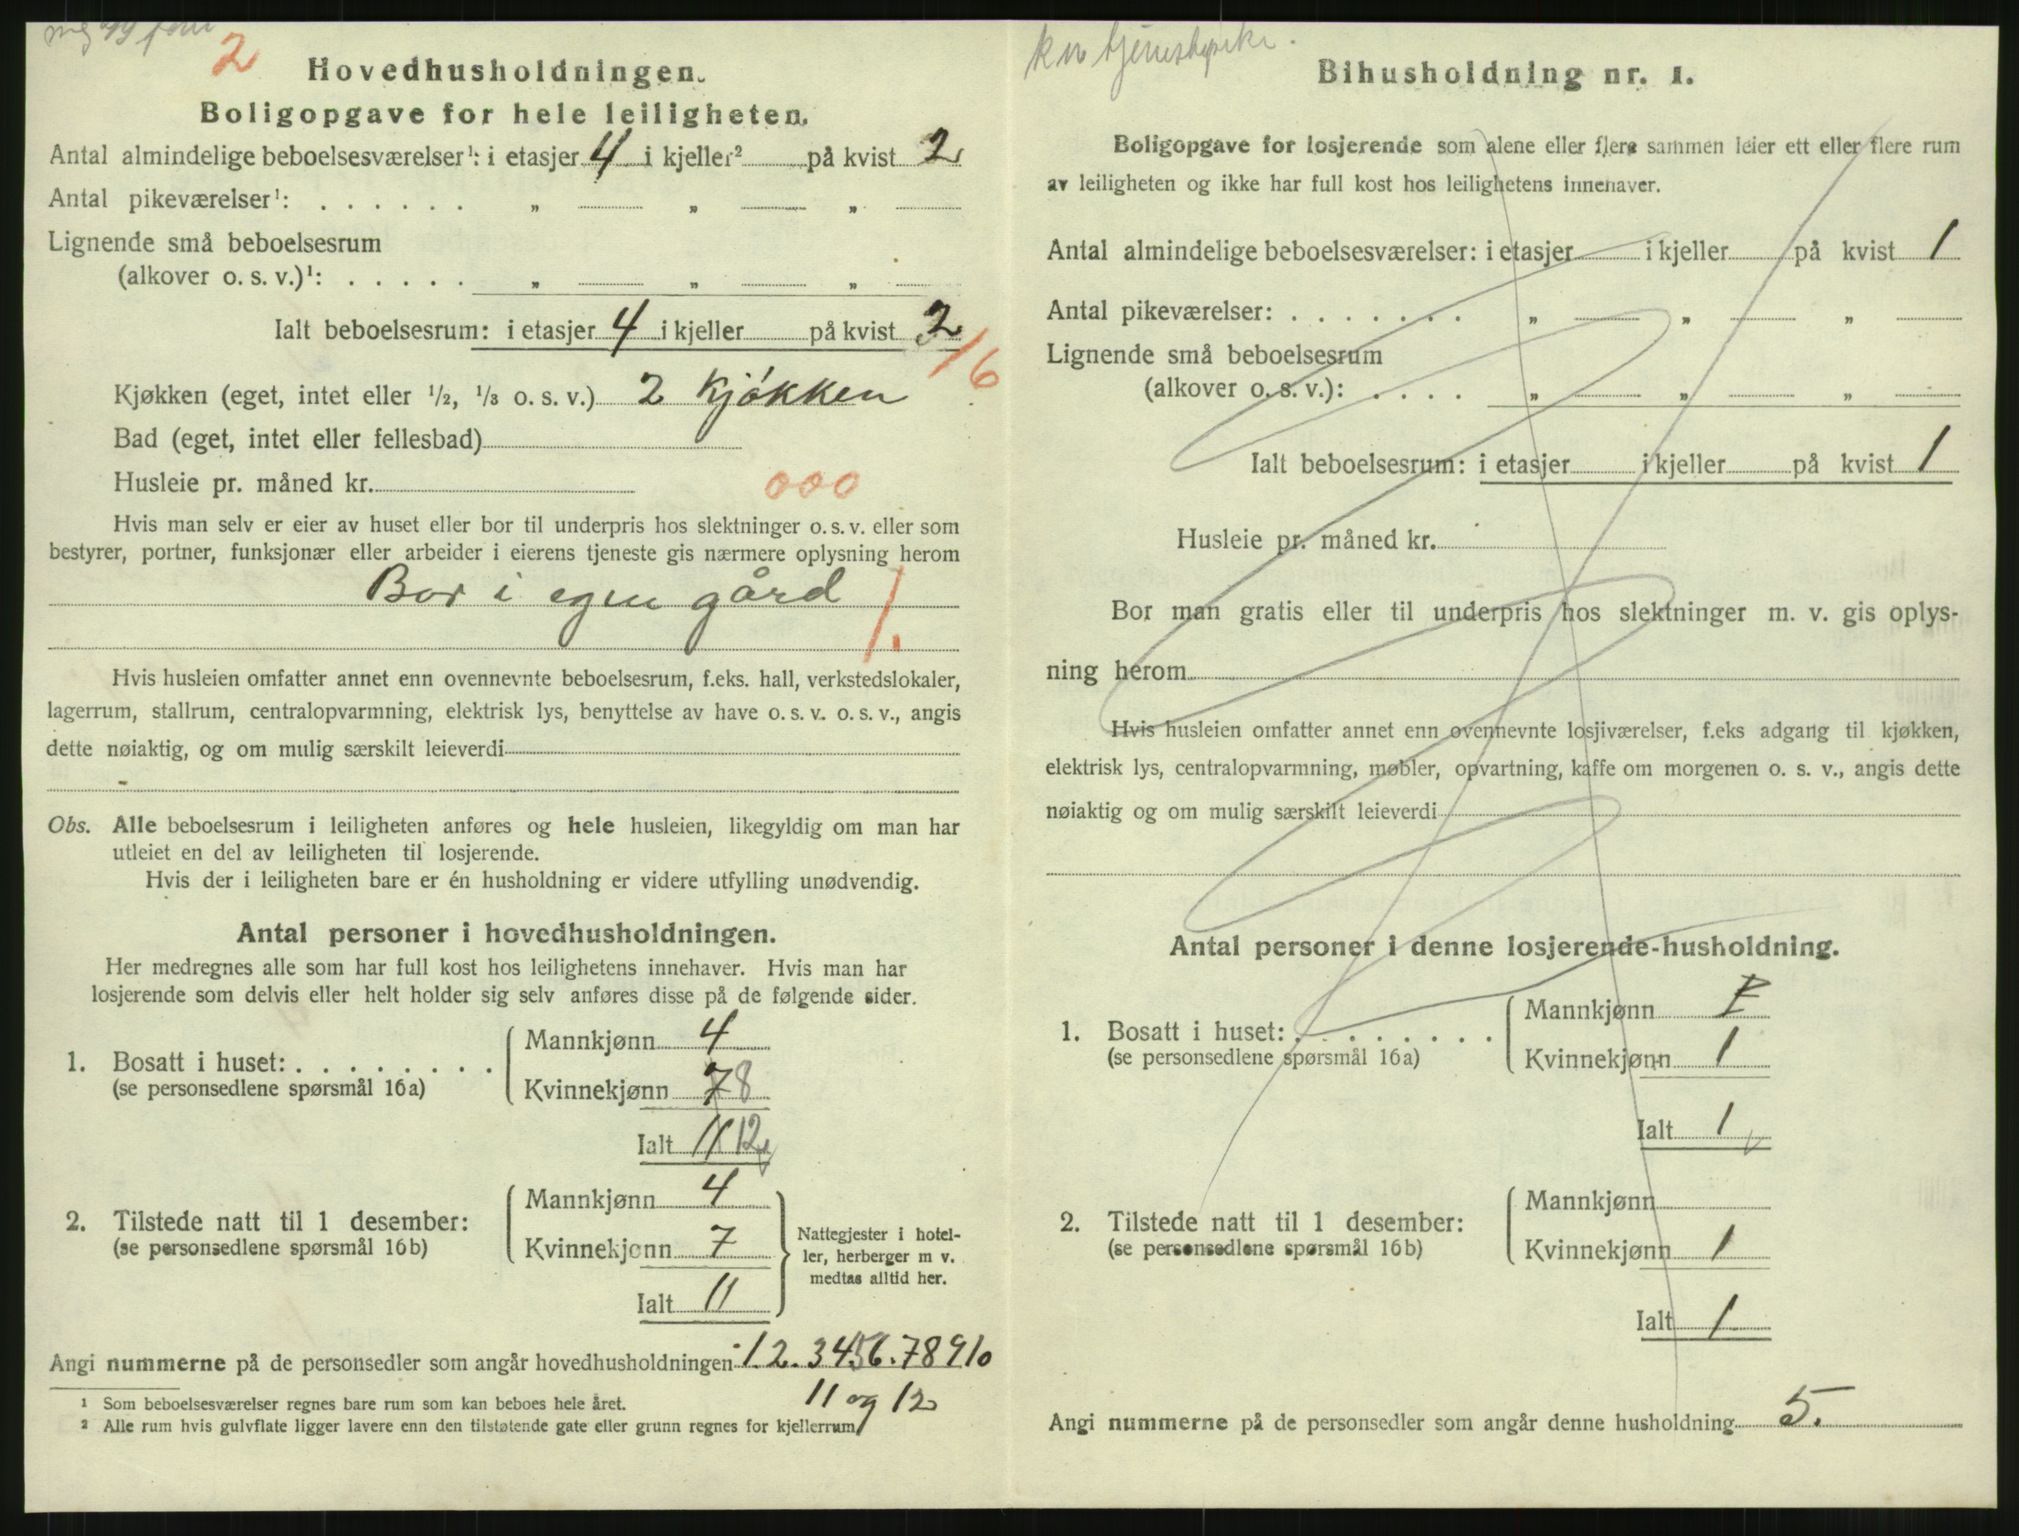 2
Hovedhusholdningen.
Boligopgave for hele leiligheten.
Antal almindelige beboelsesværelser¹: i etasjer 4 i kjeller² på kvist 2
Antal pikeværelser¹: . . . . . . „ „ „
Lignende små beboelsesrum
(alkover o. s. v.)¹: . . . . . „ „ „
Ialt beboelsesrum: i etasjer 4 i kjeller på kvist 2
/6
Kjøkken (eget, intet eller ½, ⅓ o. s. v.) 2 Kjökken
Bad (eget, intet eller fellesbad)
Husleie pr. måned kr. 000
Hvis man selv er eier av huset eller bor til underpris hos slektninger o. s. v. eller som
bestyrer, portner, funksjonær eller arbeider i eierens tjeneste gis nærmere oplysning herom
Bor i egen gård 1.
Hvis husleien omfatter annet enn ovennevnte beboelsesrum, f.eks. hall, verkstedslokaler,
lagerrum, stallrum, centralopvarmning, elektrisk lys, benyttelse av have o. s. v. o. s. v., angis
dette nøiaktig, og om mulig særskilt leieverdi
Obs. Alle beboelsesrum i leiligheten anføres og hele husleien, likegyldig om man har
utleiet en del av leiligheten til losjerende.
Hvis der i leiligheten bare er én husholdning er videre utfylling unødvendig.
Antal personer i hovedhusholdningen.
Her medregnes alle som har full kost hos leilighetens innehaver. Hvis man har
losjerende som delvis eller helt holder sig selv anføres disse på de følgende sider.
1. Bosatt i huset: . . . . . . . .
(se personsedlene spørsmål 16a)
Mannkjønn 4
Kvinnekjønn 7 8
Ialt 11 12
2. Tilstede natt til 1 desember:
(se personsedlene spørsmål 16b)
Mannkjønn 4
Kvinnekjønn 7
Ialt 11
Nattegjester i hotel-
ler, herberger m v.
medtas alltid her.
Angi nummerne på de personsedler som angår hovedhusholdningen 1. 2. 3 4 5 6. 7 8 9 10
11 og 12
¹ Som beboelsesværelser regnes bare rum som kan beboes hele året.
² Alle rum hvis gulvflate ligger lavere enn den tilstøtende gate eller grunn regnes for kjellerrum
Bihusholdning nr. 1.
Boligopgave for losjerende som alene eller flere sammen leier ett eller flere rum
av leiligheten og ikke har full kost hos leilighetens innehaver.
Antal almindelige beboelsesværelser: i etasjer i kjeller på kvist 1
Antal pikeværelser: . . . . . . . „ „ „
Lignende små beboelsesrum
(alkover o. s. v.): . . . . „ „ „
Ialt beboelsesrum: i etasjer i kjeller på kvist 1
Husleie pr. måned kr.
Bor man gratis eller til underpris hos slektninger m. v. gis oplys-
ning herom
Hvis husleien omfatter annet enn ovennevnte losjiværelser, f.eks adgang til kjøkken,
elektrisk lys, centralopvarmning, møbler, opvartning, kaffe om morgenen o. s. v., angis dette
nøiaktig og om mulig særskilt leieverdi
Antal personer i denne losjerende-husholdning.
1. Bosatt i huset: . . . . . . . . .
(se personsedlene spørsmål 16a)
Mannkjønn
Kvinnekjønn 1
Ialt 1
2. Tilstede natt til 1 desember:
(se personsedlene spørsmål 16b)
Mannkjønn
Kvinnekjønn 1
Ialt 1
Angi nummerne på de personsedler som angår denne husholdning 5.